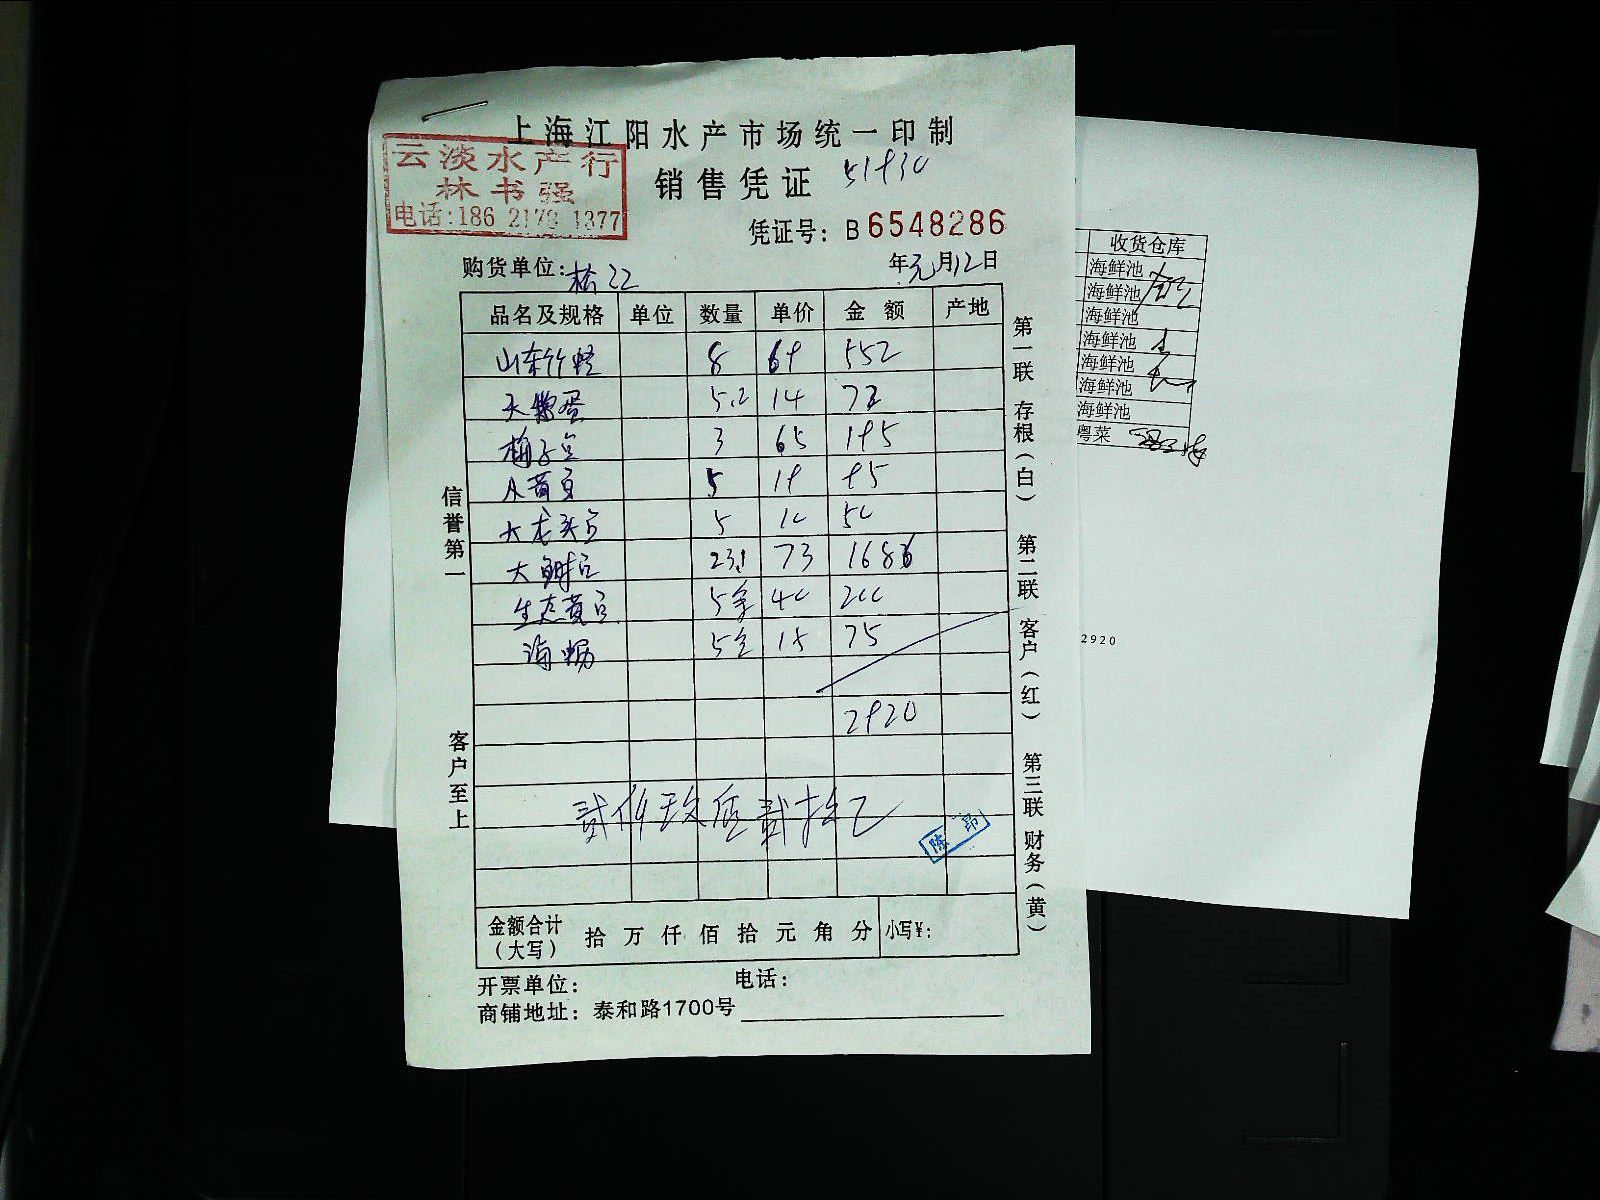 上海江阳水产市场统一印制
云淡水产行
林书强
电话:186 2179 1377
销售凭证 51930
凭证号: B 6548286
购货单位: 松江 年元月12日
品名及规格 单位 数量 单价 金额 产地
山东竹蛏 8 69 552
天鹅蛋 5.2 14 73
梅子贝 3 65 195
黄贝 5 19 95
大龙头贝 5 10 50
大鲜贝 23.1 73 1686
生态黄贝 5 40 200
海蛎 5 15 75
2920
贰仟玖佰贰拾元
陈昂
金额合计(大写) 拾 万 仟 佰 拾 元 角 分 小写¥:
开票单位: 电话:
商铺地址: 泰和路1700号
信誉第一 客户至上
第一联 存根(白) 第二联 客户(红) 第三联 财务(黄)
收货仓库
海鲜池
海鲜池
海鲜池
海鲜池
海鲜池
海鲜池
海鲜池
粤菜
2920